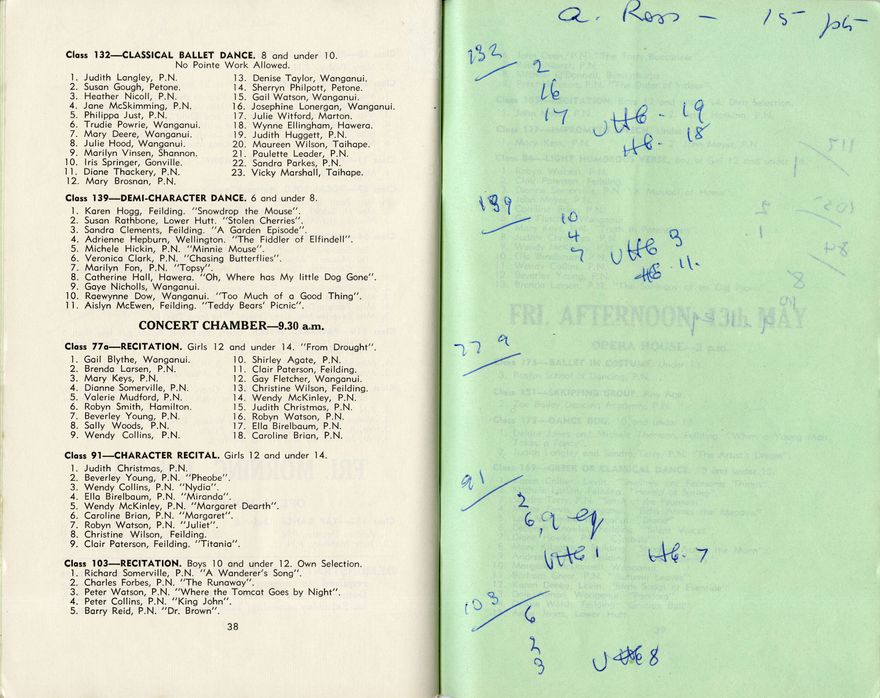 Class 132—CLASSICAL BALLET DANCE. 8 and under 10.
No Pointe Work Allowed.
1. Judith Langley, P.N.
2. Susan Gough, Petone.
3. Heather Nicoll, P.N.
4. Jane McSkimming, P.N.
5. Philippa Just, P.N.
6. Trudie Powrie, Wanganui.
7. Mary Deere, Wanganui.
8. Julie Hood, Wanganui.
9. Marilyn Vinsen, Shannon.
10. Iris Springer, Gonville.
11. Diane Thackery, P.N.
12. Mary Brosnan, P.N.
13. Denise Taylor, Wanganui.
14. Sherryn Philpott, Petone.
15. Gail Watson, Wanganui.
16. Josephine Lonergan, Wanganui.
17. Julie Witford, Marton.
18. Wynne Ellingham, Hawera.
19. Judith Huggett, P.N.
20. Maureen Wilson, Taihape.
21. Paulette Leader, P.N.
22. Sandra Parkes, P.N.
23. Vicky Marshall, Taihape.
Class 139—DEMI-CHARACTER DANCE. 6 and under 8.
1. Karen Hogg, Feilding. "Snowdrop the Mouse".
2. Susan Rathbone, Lower Hutt. "Stolen Cherries".
3. Sandra Clements, Feilding. "A Garden Episode".
4. Adrienne Hepburn, Wellington. "The Fiddler of Elfindell".
5. Michele Hickin, P.N. "Minnie Mouse".
6. Veronica Clark, P.N. "Chasing Butterflies".
7. Marilyn Fon, P.N. "Topsy".
8. Catherine Hall, Hawera. "Oh, Where has My little Dog Gone".
9. Gaye Nicholls, Wanganui.
10. Raewynne Dow, Wanganui. "Too Much of a Good Thing".
11. Aislyn McEwen, Feilding. "Teddy Bears' Picnic".
CONCERT CHAMBER—9.30 a.m.
Class 77a—RECITATION. Girls 12 and under 14. "From Drought".
1. Gail Blythe, Wanganui.
2. Brenda Larsen, P.N.
3. Mary Keys, P.N.
4. Dianne Somerville, P.N.
5. Valerie Mudford, P.N.
6. Robyn Smith, Hamilton.
7. Beverley Young, P.N.
8. Sally Woods, P.N.
9. Wendy Collins, P.N.
10. Shirley Agate, P.N.
11. Clair Paterson, Feilding.
12. Gay Fletcher, Wanganui.
13. Christine Wilson, Feilding.
14. Wendy McKinley, P.N.
15. Judith Christmas, P.N.
16. Robyn Watson, P.N.
17. Ella Birelbaum, P.N.
18. Caroline Brian, P.N.
Class 91—CHARACTER RECITAL. Girls 12 and under 14.
1. Judith Christmas, P.N.
2. Beverley Young, P.N. "Pheobe".
3. Wendy Collins, P.N. "Nydia".
4. Ella Birelbaum, P.N. "Miranda".
5. Wendy McKinley, P.N. "Margaret Dearth".
6. Caroline Brian, P.N. "Margaret".
7. Robyn Watson, P.N. "Juliet".
8. Christine Wilson, Feilding.
9. Clair Paterson, Feilding. "Titania".
Class 103—RECITATION. Boys 10 and under 12. Own Selection.
1. Richard Somerville, P.N. "A Wanderer's Song".
2. Charles Forbes, P.N. "The Runaway".
3. Peter Watson, P.N. "Where the Tomcat Goes by Night".
4. Peter Collins, P.N. "King John".
5. Barry Reid, P.N. "Dr. Brown".
38
A. Ross - 15 pts
132
2
16
17 VHC. 19
HC. 18
139
10
4
7 VHC 3
HC 11.
77 a
91
2
6, 9 eq
VHC 1 HC. 7
103
6
2
3 VHC 8